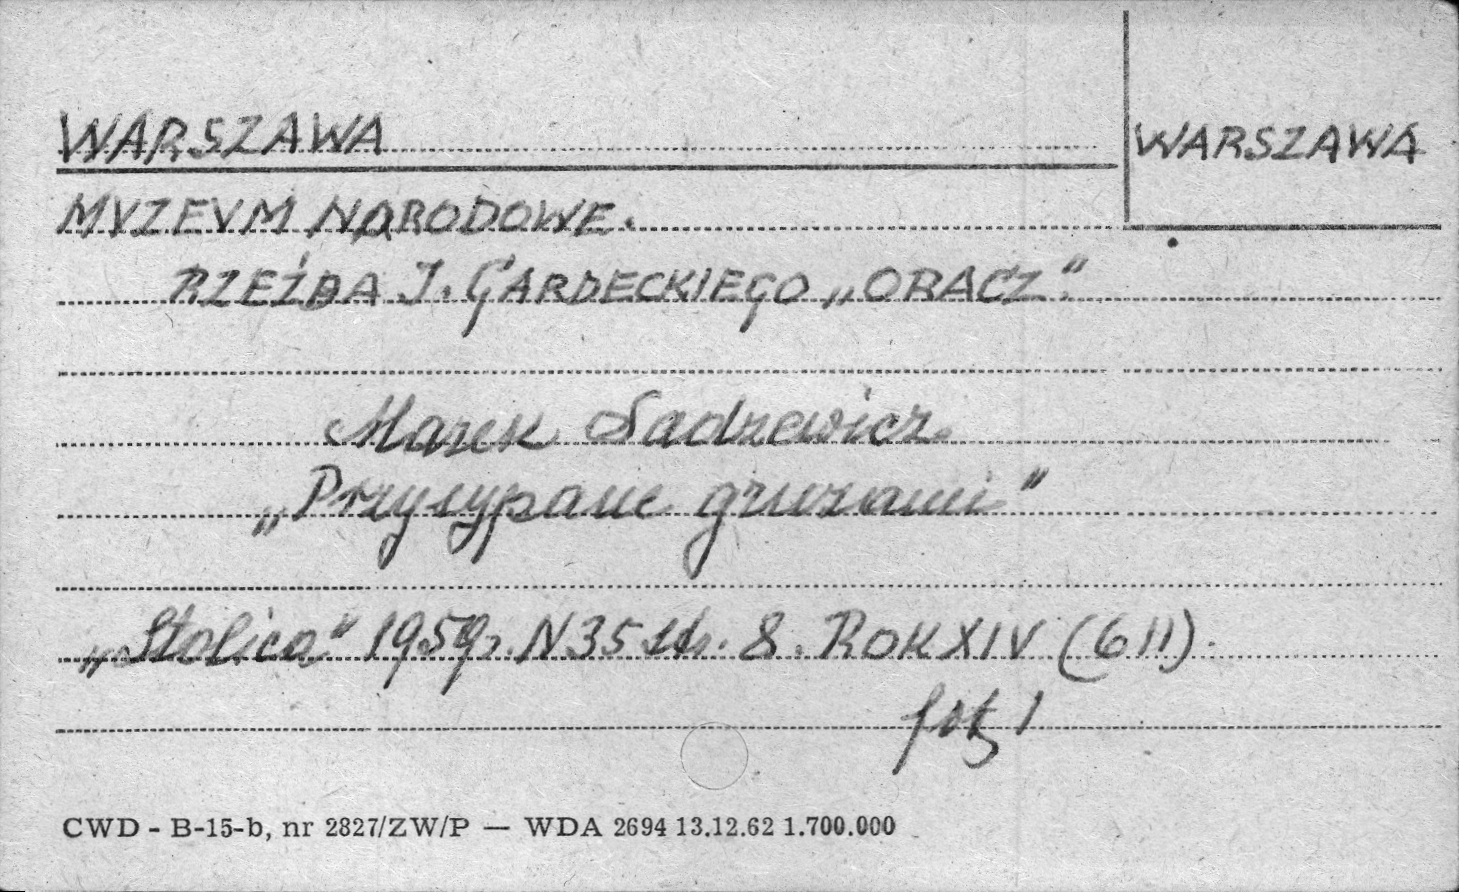 WARSZAWA
WARSZAWA
MUZEUM NARODOWE.
RZEŹBA J. GARDECKIEGO „ORACZ."
Marek Sadzewicz
„Przysypane gruzami"
„Stolica" 1959r. N 35 str. 8. ROK XIV (611).
fot. 1
CWD - B-15-b, nr 2827/ZW/P — WDA 2694 13.12.62 1.700.000